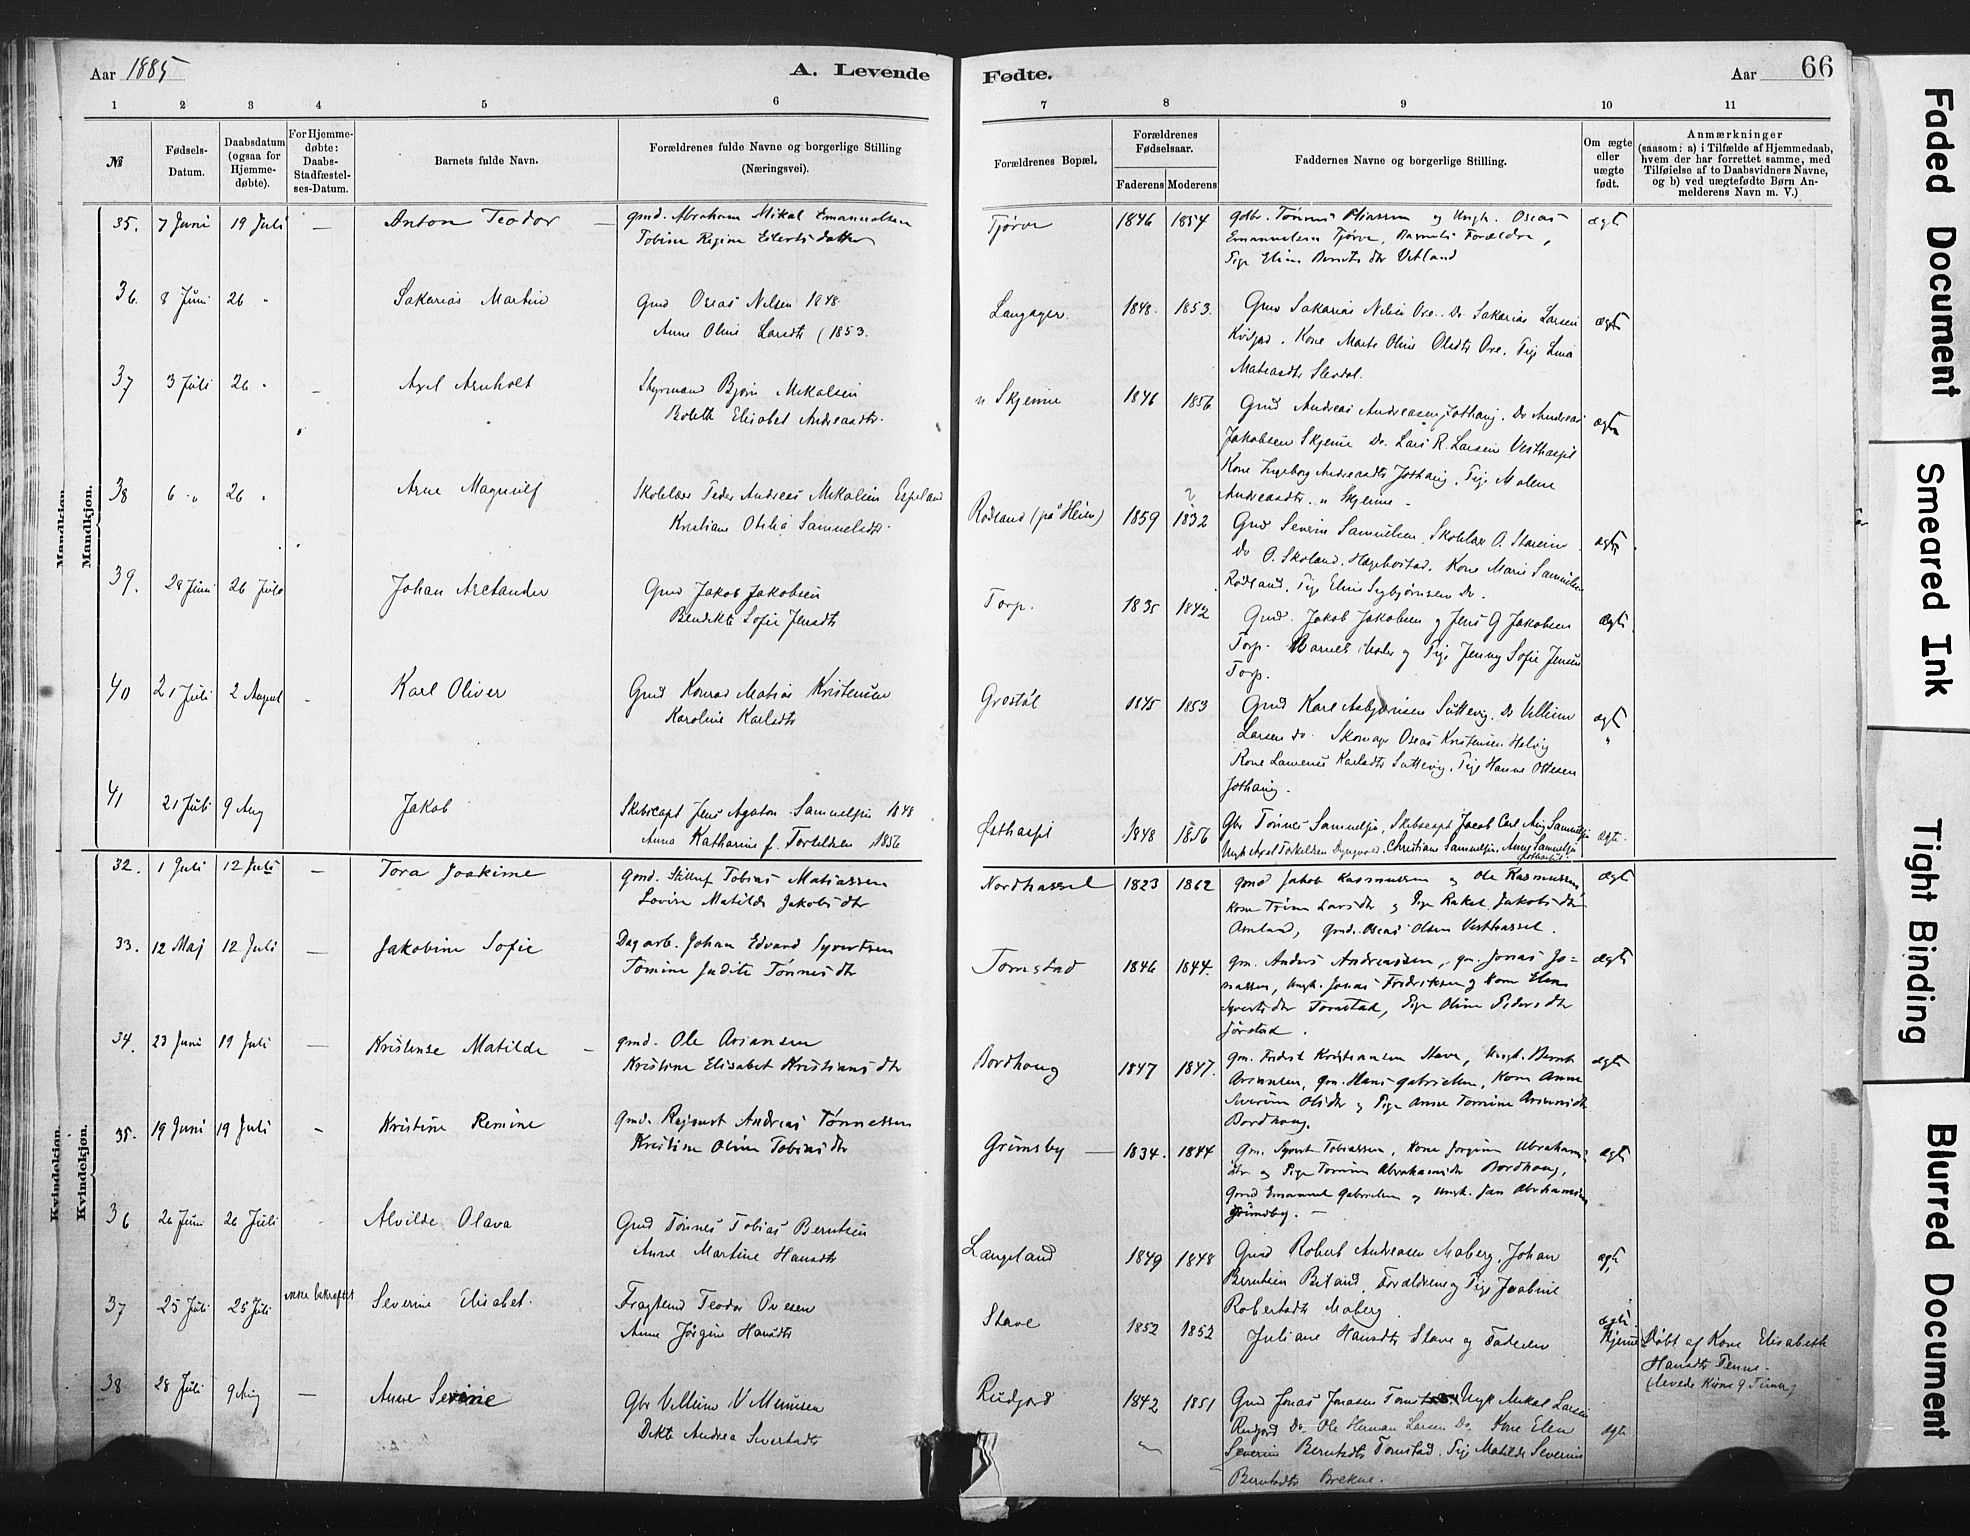 Aar 1885
A. Levende Fødte.
Aar 66
1 2 3 4 5 6 7 8 9 10 11
№
Fødsels-Datum.
Daabsdatum (ogsaa for Hjemme-døbte).
For Hjemme-døbte: Daabs-Stadfæstel-ses-Datum.
Barnets fulde Navn.
Forældrenes fulde Navne og borgerlige Stilling (Næringsvei).
Forældrenes Bopæl.
Forældrenes Fødselsaar.
Faderens Moderens
Faddernes Navne og borgerlige Stilling.
Om ægte eller uægte født.
Anmærkninger
(saasom: a) i Tilfælde af Hjemmedaab, hvem der har forrettet samme, med Tilføielse af to Daabsvidners Navne, og b) ved uægtefødte Børn An-melderens Navn m. V.)
Mandkjøn.
35. 7 Juni 19 Juli — Anton Teodor — gmd. Abraham Mikal Emanuelsen
Tobine Regine Eilertsdatter
Tjørve 1846 1854
Emanuelsen Tjørve, Barnets Forældre,
Pige Eline Bernts dtr Vetland
ægte
36. 8 Juni 26 " Sakarias Martin
Gmd Oseas Nilsen 1848
Anne Oline Larsdtr (1853.
Langager. 1848. 1853.
Gmd Sakarias Nilsen Ore. Do Sakarias Larsen
Kone Marte Oline Olsdtr Ore. Pige Lina
ægte
37 3 Juli 26 " — Axel Arnholt
Styrmand Bjørn Mikalsen
Bolette Elisabet Andreasdtr.
n Skjeme 1846 1856
Gmd Andreas Andreasen Jothaug. Do Andreas
Jakobsen Skjeme Do. Lars R. Larsen Vesthassel
Kone Ingeborg Andreasdtr Jothaug, Pige Malene
Andreasdtr. n Skjeme -
ægte
38 6 " 26 " — Arne Magnulf
Skolelær Peder Andreas Mikalsen Espeland
Kristiane Otilia Samuelsdtr.
Rødland (på Heien) 1859 1832
Gmd Severin Samuelsen, Skolelær O. Stareim
Do O. Skoland, Hægebostad. Kone Marie Samuelsen
Rødland, Pige Eline Sigbjørnsen Do.
ægte
39. 28 Juni 26 Juli Johan Alexander
Gmd Jakob Jakobsen
Bendikte Sofie Jensdtr
Torp. 1835 1842
Gmd. Jakob Jakobsen og Jens G Jakobsen
Torp. Barnets Moder og Pige Jenny Sofie Jensen
Torp.
ægte
40 21 Juli 2 August - Karl Oliver
Gmd Konrad Matias Kristensen
Karoline Karlsdtr
Grostøl 1845 1853
Gmd Karl Asbjørnsen Suttevig. Do Villum
Larsen do. Skomager Oseas Kristensen Helvig
Kone Lamense Karlsdtr Suttevig, Pige Hanne Ottesen
Jothaug.
ægte
"
41 21 Juli 9 Aug Jakob
Skibscapt Jens Agaton Samuelsen 1848
Anna Katharine f. Torkelsen 1856
Østhassel 1848 1856
Gbr Tønnes Samuelsen, Skibscapt Jacob Carl Aug Samuelsen
Ungk Axel Torkelsen Christiane Samuelsen. Anny Samuelsen
Østhassel.
ægte.
Kvindekjøn.
32. 1 Juli 12 Juli — Tora Joakime
gmd. Tobias Matiassen
Lovise Matilde Jakobsdtr
Nordhassel 1823 1862
gmd Jakob Rasmussen og Ole Rasmussen,
Kone Trine Larsdtr og Pige Rakel Jakobsdtr
gmd. Oseas Olsen Vesthassel.
ægte
33. 12 Maj 12 Juli — Jakobine Sofie
Dagarb. Johan Edvard Syvertsen
Tomine Judite Tønnesdtr
Tomstad 1846 1844.
gm. Anders Andreassen, gm. Jonas Jo=
nassen, Ungk. Jonas Fredriksen og Kone Elen
Syvertsdtr Tomstad, Pige Oline Pedersdtr
Jørstad.
ægte
34. 23 Juni 19 Juli — Kristense Matilde —
gmd. Ole Ariansen
Kristine Elisabet Kristiansdtr
Bordhaug 1847 1847.
gm. Fredrik Kristiansen Stave, Ungk. Bernt
Ariansen, gm. Hans Gabrielsen, Kone Anne
Severine Olsdtr og Pige Anne Tomine Ariansdtr
Bordhaug.
ægte
35. 19 Juni 19 Juli - Kristine Remine
gmd. Rejnert Andreas Tønnessen
Kristine Oline Tobiasdtr
Grimsby — 1834. 1844
gm. Syvert Tobiassen, Kone Jørgine Abrahams-
dtr og Pige Tomine Abrahamsdtr Bordhaug,
Gmd Emanuel Gabrielsen og Ungk. Jan Abrahamsen
Grimsby. —
ægte
36 26 Juni 26 Juli - Alvilde Olava
Gmd Tønnes Tobias Berntsen
Anne Martine Hansdtr
Langeland 1849 1848
Gmd Robert Andreasen Maberg, Johan
Berntsen Forældrene og Pige Joabine
Robertsdtr Maberg
ægte
37 25 Juli 25 Juli ikke bekræftet Severine Elisabet.
Fragtemd Teodor Ovesen
Anne Jørgine Hansdtr
Stave 1852 1852
Juliane Hansdtr Stave og Faderen
ægte.
Hjemme
Døbt af Kone Elisabeth
Hansdtr Penne.
38 28 Juli 9 Aug — Anne Serine
Gbr Villum V Monsen
Dikte Andrea Sivertsdtr
Rudjord 1842 1851
Gmd Jonas Jonasen Tomstad. Ungk Mikal Larsen
Rudjord Do. Ole Herman Larsen Do Kone Elen
Severine Berntsdtr Tomstad. Pige Matilde Severine
Berntsdtr Brekne.
ægte
Faded Document
Smeared Ink
Tight Binding
Blurred Document